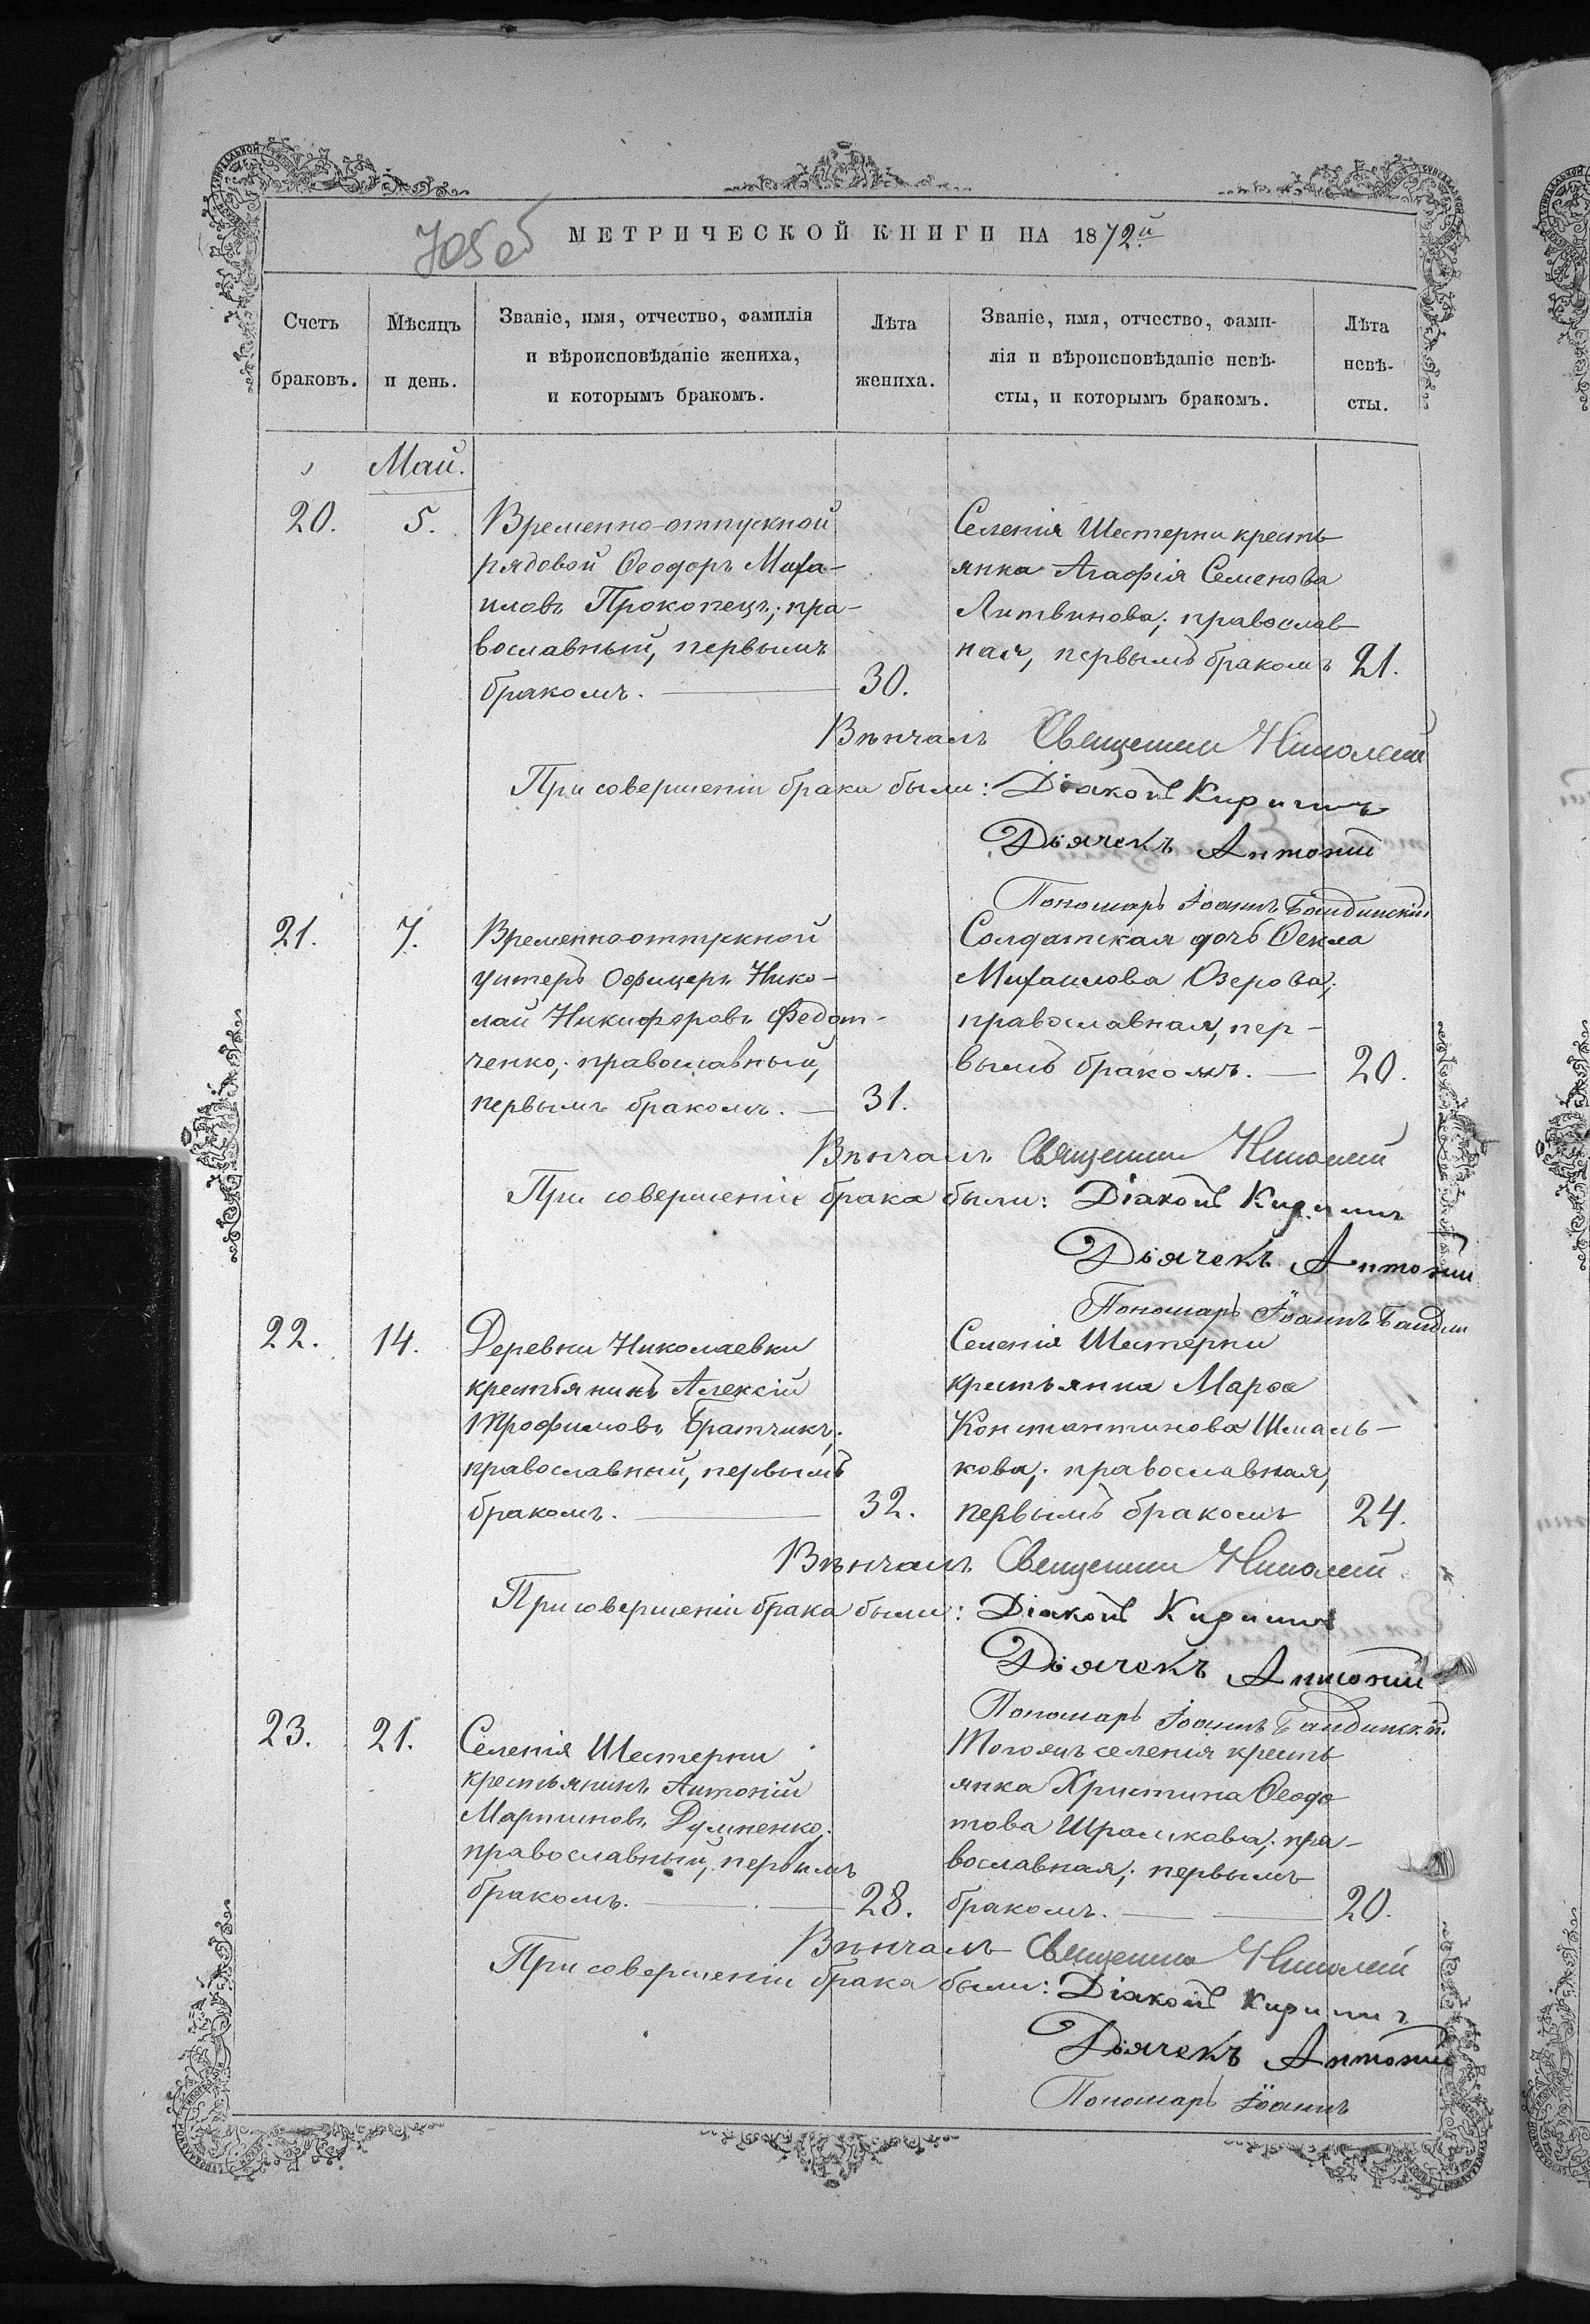 МЕТРИЧЕСКОЙ КНИГИ НА 1872й
Счетъ браковъ.
Мѣсяцъ и день.
Званіе, имя, отчество, фамилія
и вѣроисповѣданіе жениха,
и которымъ бракомъ.
Лѣта жениха.
Званіе, имя, отчество, фами-
лія и вѣроисповѣданіе невѣ-
сты, и которымъ бракомъ.
Лѣта невѣ-
сты.
Май.
20. 5.
Временно-отпускной
рядовой Ѳеодоръ Миха-
иловъ Прокопецъ; пра-
вославный, первымъ
бракомъ. 30.
Селенія Шестерни кресть
янка Агафія Семенова
Литвинова; православ
ная, первымъ бракомъ 21.
Вѣнчалъ Священник Николай
При совершеніи брака были: Діаконъ Кирилъ
Дьячекъ Антоній
Пономарь Іоаннъ
21. 7.
Временно-отпускной
унтеръ Офицеръ Нико-
лай Никифоровъ Федот-
ченко; православный,
первымъ бракомъ. 31.
Солдатская дочь Ѳекла
Михаилова Озерова;
православная, пер-
вымъ бракомъ. 20.
Вѣнчалъ Священник Николай
При совершеніи брака были: Діаконъ Кирилъ
Дьячекъ Антоній
Пономарь Іоаннъ
22. 14.
Деревни Николаевки
крестьянинъ Алексій
Трофимовъ Братчикъ;
православный, первымъ
бракомъ. 32.
Селенія Шестерни
крестьянка Марѳа
Константинова Шмаль-
кова; православная,
первымъ бракомъ 24.
Вѣнчалъ Священник Николай
При совершеніи брака были: Діаконъ Кирилъ
Дьячекъ Антоній
Пономарь Іоаннъ
23. 21.
Селенія Шестерни
крестьянинъ Антоній
Мартиновъ Думненко;
православный, первымъ
бракомъ. 28.
Тогожъ селенія кресть
янка Христина Ѳеодо
това Шрамкова; пра-
вославная; первымъ
бракомъ. 20.
Вѣнчалъ Священник Николай
При совершеніи брака были: Діаконъ Кирилъ
Дьячекъ Антоній
Пономарь Іоаннъ